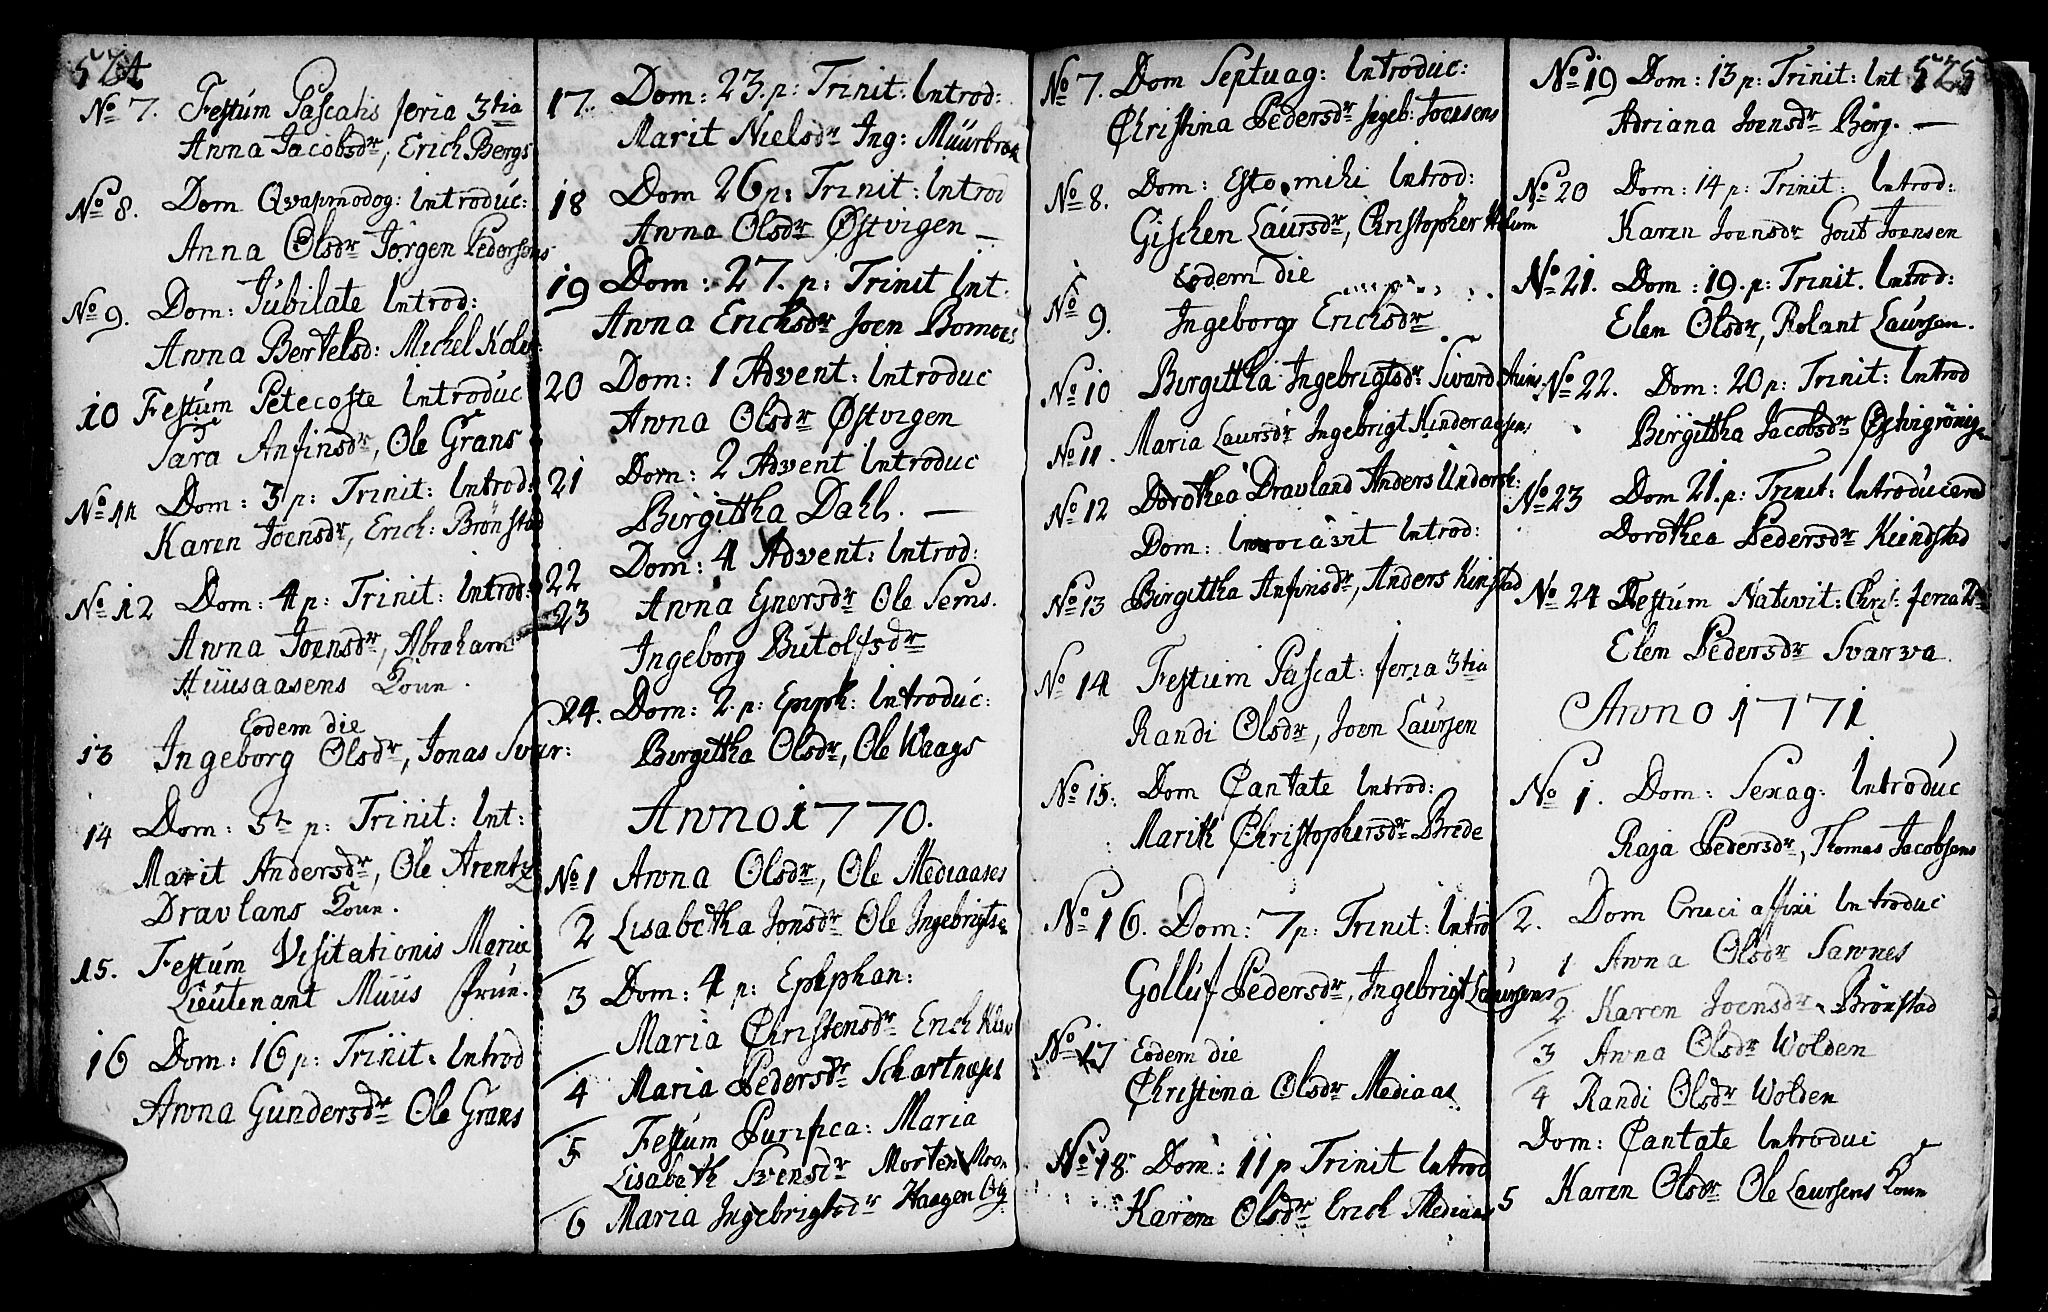 524
No 7. Festum Paschatis feria 3tia
Anna Jacobsdr, Erich Bergs
No 8. Dom Qvasimodog: Introduc:
Anna Olsdr Jörgen Pedersens
No 9. Dom: Jubilate Introd:
Anna Bertelsd: Michel
10 Festum Petecoste Introduc
Sara Anfinsdr, Ole Grans
No 11 Dom: 3 p: Trinit: Introd:
Karen Joensdr, Erich: Brönstad
No 12 Dom: 4 p: Trinit: Introd:
Anna Joensdr, Abraham
Huusaasens Kone.
Eodem die
13 Ingeborg Olsdr, Jonas
14 Dom: 5te p: Trinit: Int:
Marit Andersdr, Ole Arentz
Dravlans Kone.
15. Festum Visitationis Mariæ
Lieutenant Muus frue.
16 Dom: 16 p: Trinit. Introd
Anna Gundersdr Ole Grans
17. Dom: 23. p: Trinit: Introd:
Marit Nielsdr Ing:
18 Dom 26 p: Trinit: Introd
Anna Olsdr Østvigen —
19 Dom: 27. p: Trinit Int.
Anna Erichsdr Joen
20 Dom: 1 Advent: Introduc
Anna Olsdr Østvigen
21 Dom: 2 Advent Introduc
Birgittha Dahl. —
22 Dom: 4 Advent: Introd:
23 Anna Enersdr Ole Sems.
Ingeborg Butolfsdr
24. Dom: 2. p: Epiph: Introduc:
Birgittha Olsdr, Ole Waags
Anno 1770.
No 1 Anna Olsdr, Ole Mediaases
2 Lisabetha Jonsdr Ole Ingebrigtsen
3 Dom: 4 p: Epiphan:
Maria Christensdr Erich
4 Maria Pedersdr Schartnæss
5 Festum Purifica: Maria
Lisabeth Svensdr Morten
6 Maria Ingebrigtsdr Haagen
No 7. Dom Septuag: Introduc:
Christina Pedersdr Ingeb: Joensens
No 8. Dom: Esto mihi Introd:
Gischen Laursdr, Christopher
Eodem die
No 9. Ingeborg Erichsdr
No 10 Birgittha Ingebrigtsdr Sivard
No 11. Maria Laursdr Ingebrigt Kinderaasen
No 12 Dorothea Dravland Anders
Dom: Invocavit Introd:
No 13 Birgittha Anfinsdr, Anders Kinstad
No 14 Festum Pascat: feria 3tia
Randi Olsdr, Joen Laursen
No 15. Dom Cantate Introd:
Marith Christophersdr Brede
No 16. Dom: 7 p: Trinit: Intro
Golluf Pedersdr, Ingebrigt Laursens
No 17 Eodem die
Christina Olsdr Mediaas
No 18. Dom: 11 p Trinit Introd
Karen Olsdr Erich Mediaas
525
No 19 Dom: 13 p: Trinit: Int
Adriana Joensdr Berg. —
No 20 Dom: 14 p: Trinit: Introd:
Karen Joensdr Gout Joensen
No 21. Dom: 19. p: Trinit. Introd:
Elen Olsdr, Rolant Laursen.
No 22. Dom: 20 p: Trinit: Introd
Birgittha Jacobsdr
No 23 Dom 21. p: Trinit: Introducered
Dorothea Pedersdr Kiendstad
No 24 Festum Nativit: Chri: feria 2da
Elen Pedersdr Svarva
Anno 1771
No 1. Dom: Sexag: Introduc
Raja Pedersdr, Thomas Jacobsens
2. Dom Cruci affixi Introduc
1 Anna Olsdr Sawnes
2 Karen Joensdr Brönstad
3 Anna Olsdr Wolden
4 Randi Olsdr Wolden
Dom: Cantate Introduc
5 Karen Olsdr Ole Laursens Kone